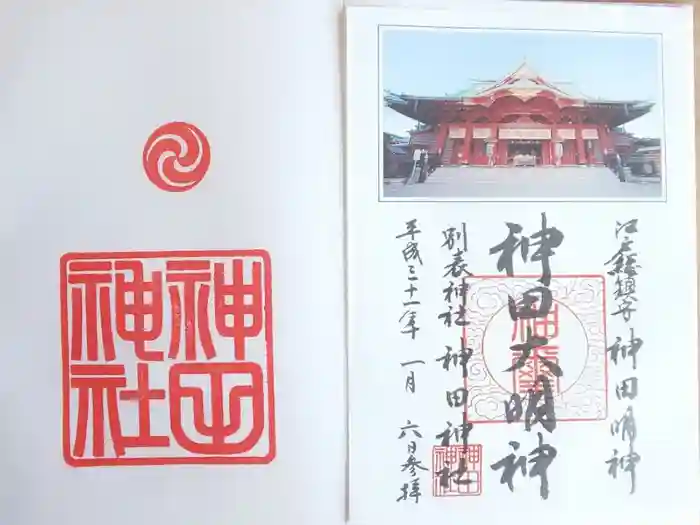 江戸総鎮守 神田明神
神田大明神
別表神社 神田神社
平成三十一年 一月 六日参拝
神田
神社
神田
神社